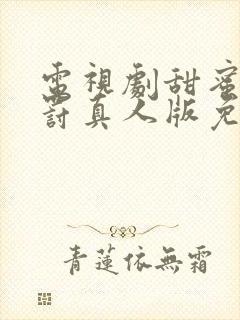 電視劇甜蜜
討真人版免
青蓮依無霜